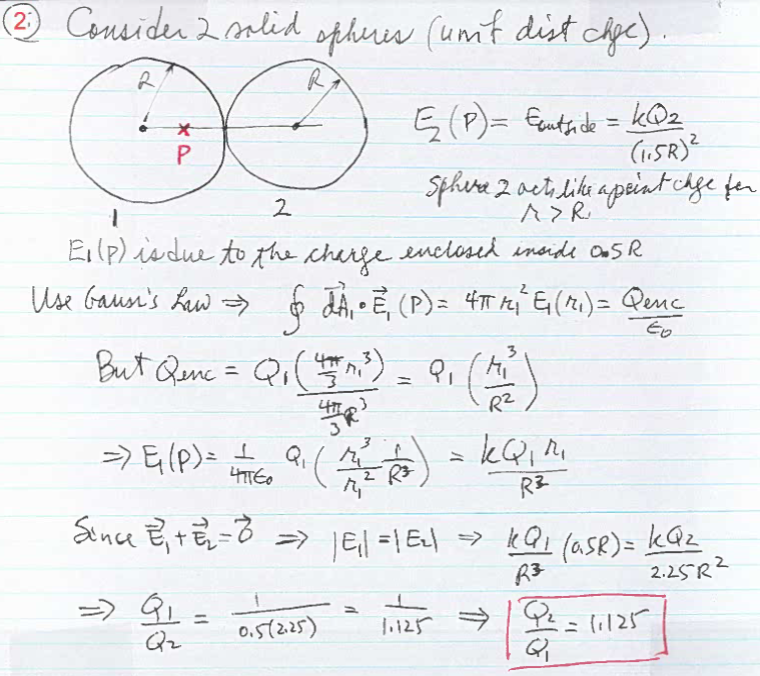 2:
Consider 2 solid spheres (unif dist chge).
R
R
P
1
2
E₂(P) = E_outside = kQ₂/(1.5R)²
Sphere 2 acts like a point chge for
r > R.
E₁(P) is due to the charge enclosed inside 0.5R
Use Gauss's Law ⇒ ∮ dA⃗₁ • E⃗₁(P) = 4π r₁² E₁(r₁) = Qenc/ε₀
But Qenc = Q₁(4π/3 r₁³)/(4π/3 R³) = Q₁(r₁³/R²)
⇒ E₁(P) = 1/(4πε₀) Q₁(r₁³/r₁² 1/R³) = kQ₁r₁/R³
Since E⃗₁ + E⃗₂ = 0⃗ ⇒ |E₁| = |E₂| ⇒ kQ₁/R³ (0.5R) = kQ₂/2.25R²
⇒ Q₁/Q₂ = 1/0.5(2.25) = 1/1.125 ⇒ Q₂/Q₁ = 1.125